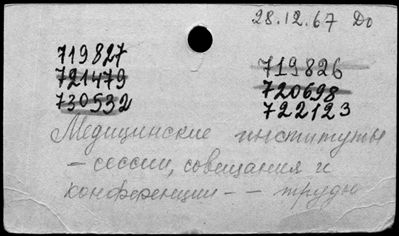 28.12.67 До
719827
721479
730532
719826
720698
722123
Медицинские институты
- сессии, совещания и
конференции - - труды